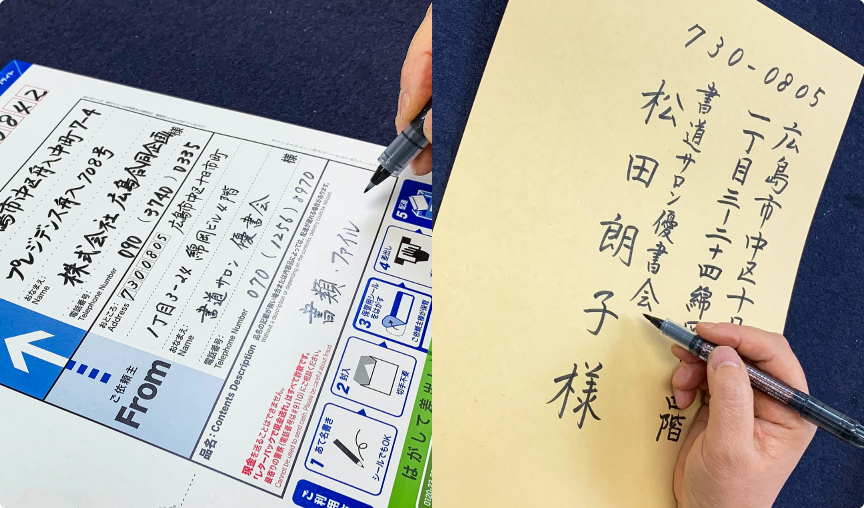 プレジデンス舟入708号
おなまえ:
Name
株式会社 広島合同企画 様
電話番号:
Telephone Number
090 (3740) 0335
ご依頼主
From
おところ:
Address
7300805
広島市中区十日市町
1丁目3-24 綿岡ビル4階
おなまえ:
Name
書道サロン 優書会
様
電話番号:
Telephone Number
070 (1256) 8970
品名: Contents Description
書類・ファイル
現金を送ることはできません。
「レターパックで現金送れ」はすべて詐欺です。
ご利用
1 あて名書き
シールでもOK
2 封入
切手不要
3 保管用シールをはがす
ご依頼主様が保管
4 差出し
5 配達
はがして差出し
730-0805
広島市中区十日
一丁目三-二十四綿
階
書道サロン優書会
松田朗子様